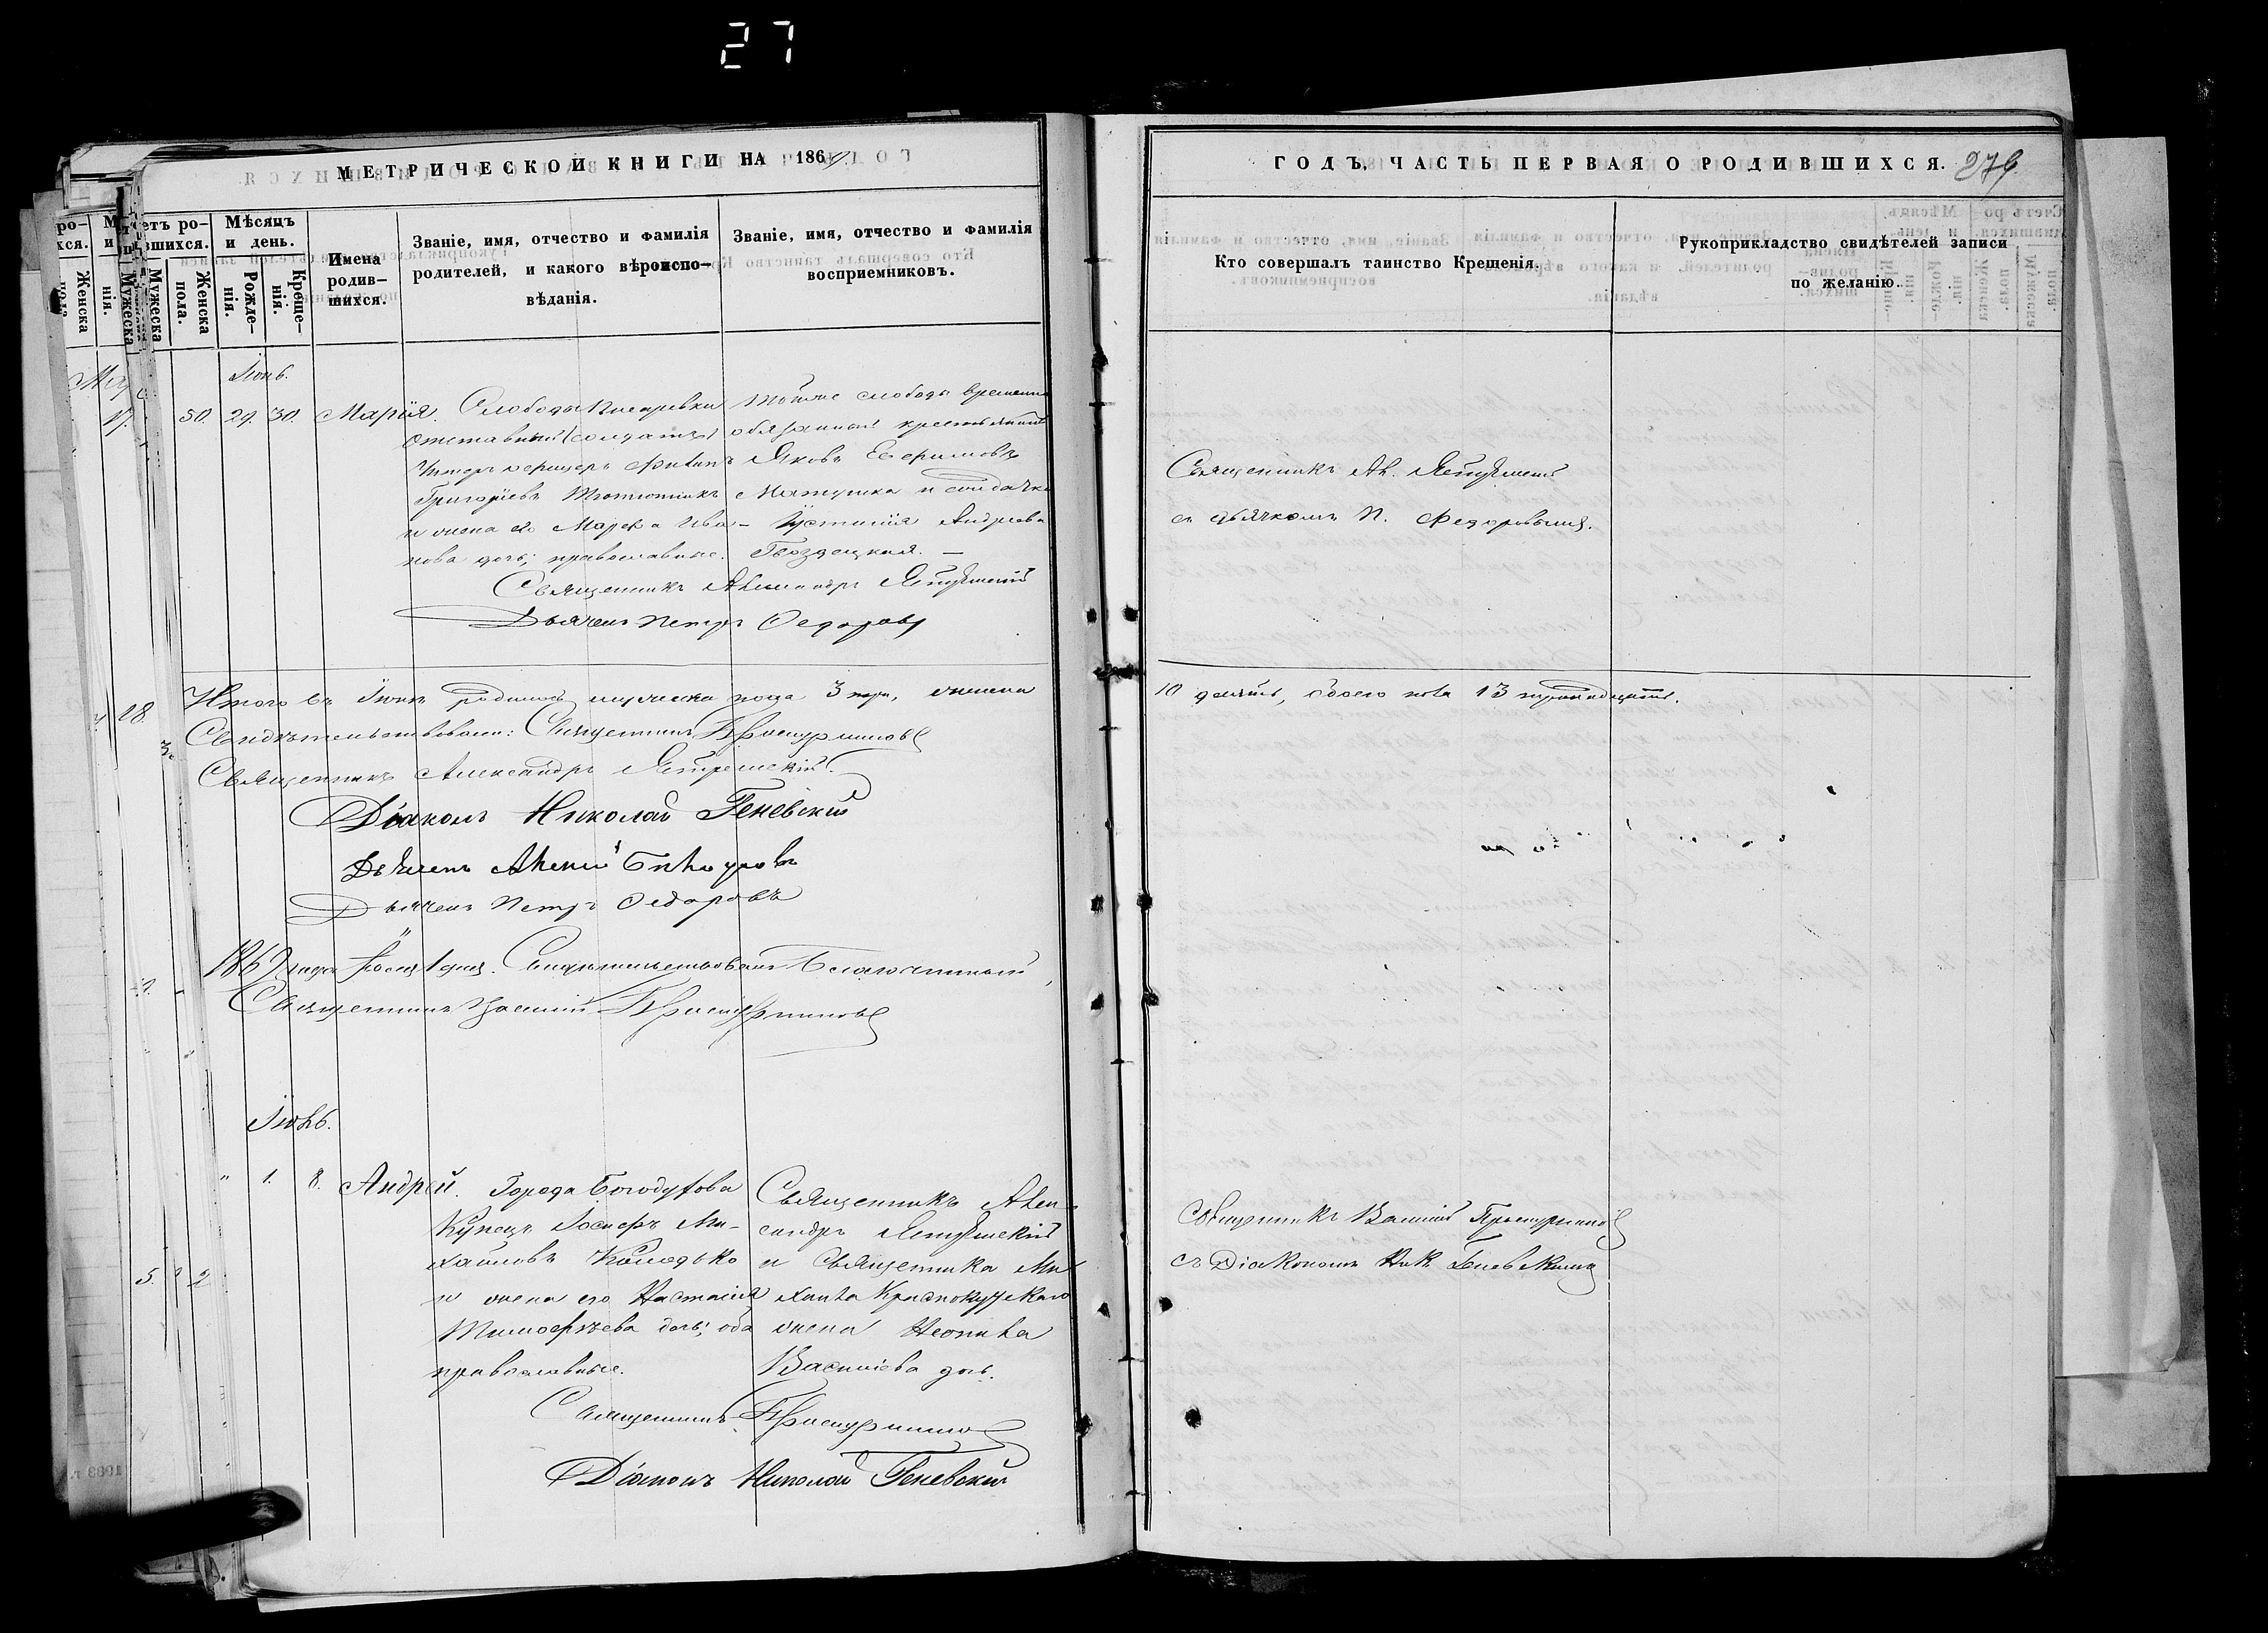 27
МЕТРИЧЕСКОЙ КНИГИ НА 1869
ГОДЪ, ЧАСТЬ ПЕРВАЯ О РОДИВШИХСЯ. 276
Счетъ ро-
дившихся.
Мужеска пола.
Женска пола.
Мѣсяцъ
и день.
Рожде-
нія.
Креще-
нія.
Имена
родив-
шихся.
Званіе, имя, отчество и фамилія
родителей, и какого вѣроиспо-
вѣданія.
Званіе, имя, отчество и фамилія
восприемниковъ.
Кто совершалъ таинство Крещенія.
Рукоприкладство свидѣтелей записи
по желанію.
Іюнь.
50. 29. 30. Марія.
Слободы Писаревки
отставный (солдатъ)
Унтеръ офицеръ Филипъ
Григоріевъ
и жена его Марфа Ива-
нова дочь; православные.
тойже слободы временно
обязанный крестьянинъ
Яковъ Евфимовъ
Матушка и солдатка
Устинія Андреева
Гвоздецкая. —
Священникъ Ал. Ястремскій
съ дьячкомъ П. Федоровымъ.
Священникъ Александръ Ястремскій
Дьячекъ Петръ Федоровъ
Итого въ Іюнѣ родилось мужеска пола 3 три, женска
10 десять, обоего пола 13 тринадцать.
Свидѣтельствовали: Священникъ
Священникъ Александръ Ястремскій.
Діаконъ Николай Геневскій
Дьячекъ Алексій
Дьячекъ Петръ Федоровъ
1869 года Іюля 1 дня. Свидѣтельствовалъ Благочинный,
Священникъ Василій
Іюль.
" 1. 8. Андрей.
Города Богодухова
Купецъ Іосифъ Ми-
хайловъ Колодько
и жена его Настасія
Тимофѣева дочь; оба
православные.
Священникъ Алек-
сандръ Ястремскій
и Священника Ми-
хаила Краснокутскаго
жена Неонила
Василіева дочь.
Священникъ Василій
съ Діакономъ Ник. Геневскимъ
Священникъ
Діаконъ Николай Геневскій